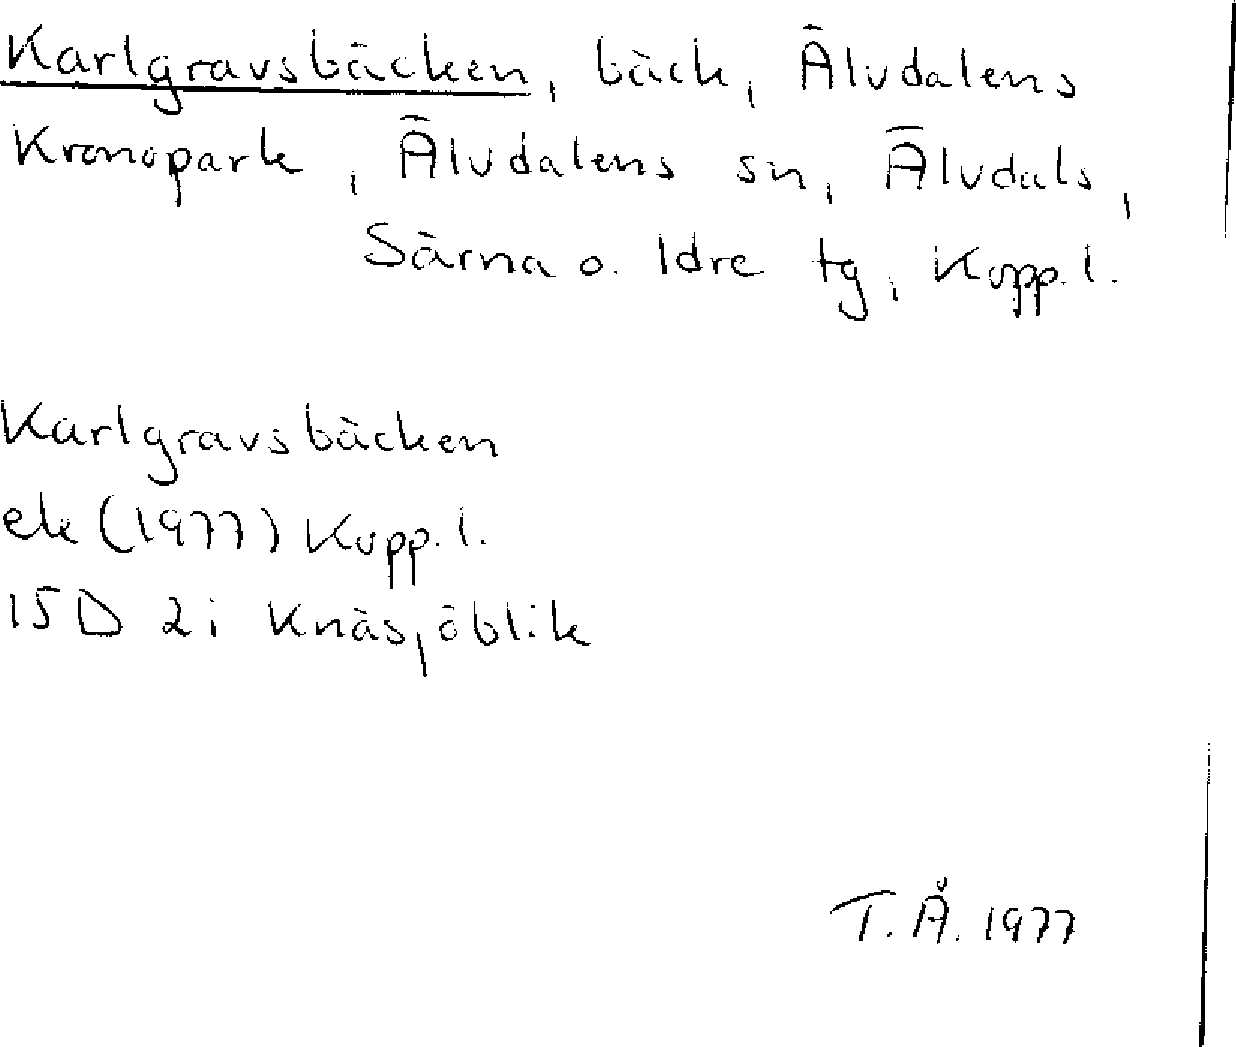 Karlgravsbäcken, bäck, Älvdalens
Kronopark, Älvdalens sn, Älvdals,
Särna o. Idre tg, Kopp. l.
Karlgravsbäcken
ek (1977) Kopp. l.
15D 2i Knäsjöblik
T. Å. 1977